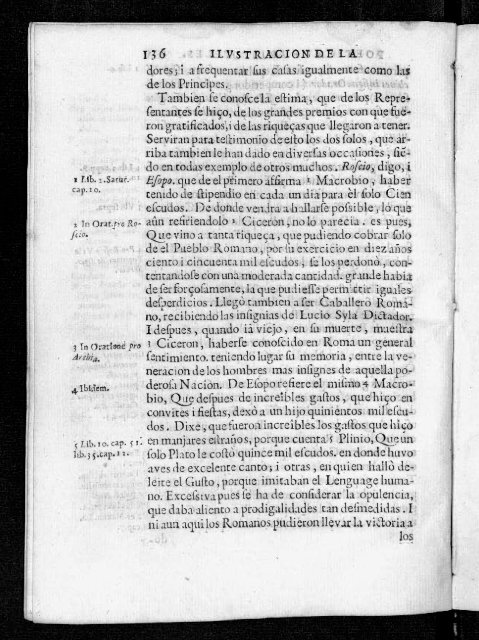 136 ILVSTRACION DE LA
dores; i a frequentar sus casas igualmente como las
de los Principes.
Tambien se conosce la estima, que de los Repre-
sentantes se hiço, de los grandes premios con que fue-
ron gratificados, i de las riqueças que llegaron a tener.
Serviran para testimonio de esto los dos solos, que ar-
riba tambien le han dado en diversas occasiones, siẽ-
do en todas exemplo de otros muchos. Roscio, digo, i
1 Lib. 2. Satur.
cap. 10.
Esopo. que de el primero affirma 1 Macrobio, haber
tenido de stipendio en cada un dia para èl solo Cien
escudos. De donde vendra a hallarse possible, lo que
2 In Orat. pro Ro-
scio.
aun refiriendolo 2 Ciceron, no lo parecia. es pues,
Que vino a tanta riqueça, que pudiendo cobrar solo
de el Pueblo Romano, por su exercicio en diez años
ciento i cincuenta mil escudos, se los perdonò, con-
tentandose con una moderada cantidad. grande habia
de ser forçosamente, la que pudiesse permittir iguales
desperdicios. Llegò tambien a ser Caballero Roma-
no, recibiendo las insignias de Lucio Syla Dictador.
I despues, quando ia viejo, en su muerte, muestra
3 In Oratione pro
Archia.
3 Ciceron, haberse conoscido en Roma un general
sentimiento. teniendo lugar su memoria, entre la ve-
neracion de los hombres mas insignes de aquella po-
4 Ibidem.
derosa Nacion. De Esopo refiere el mismo 4 Macro-
bio, Que despues de increibles gastos, que hiço en
convites i fiestas, dexò a un hijo quinientos mil escu-
dos. Dixe, que fueron increibles los gastos que hiço
5 Lib. 10. cap. 51.
lib. 35. cap. 12.
en manjares estraños, porque cuenta 5 Plinio, Que un
solo Plato le costò quince mil escudos. en donde huvo
aves de excelente canto; i otras, en quien hallò de-
leite el Gusto, porque imitaban el Lenguage huma-
no. Excessiva pues se ha de considerar la opulencia,
que daba aliento a prodigalidades tan desmedidas. I
ni aun aqui los Romanos pudieron llevar la victoria a
los